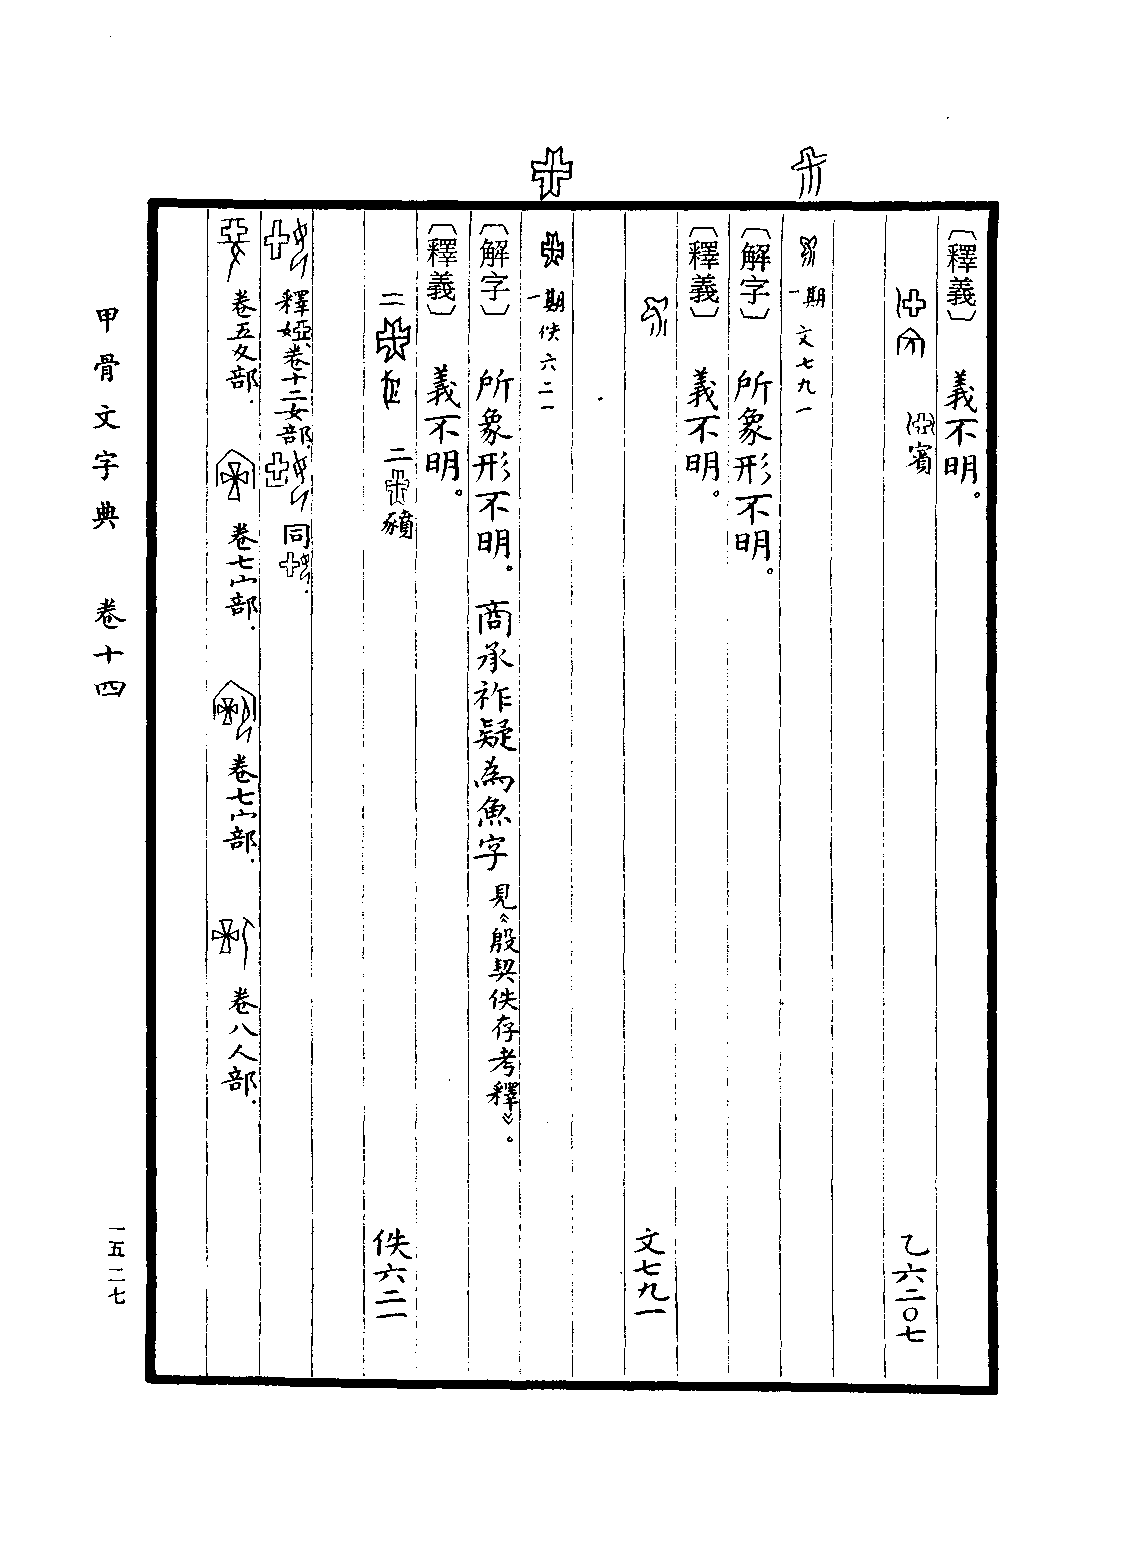 〔釋義〕 義不明。
賓 乙六二〇七
一期 文七九一
〔解字〕 所象形不明。
〔釋義〕 義不明。
文七九一
一期 佚六二一
〔解字〕 所象形不明。商承祚疑為魚字見《殷契佚存考釋》。
〔釋義〕 義不明。
二 二 佚六二一
釋婭卷十二女部. 同
卷五夊部. 卷七宀部. 卷七宀部. 卷八人部.
甲骨文字典 卷十四
一五二七